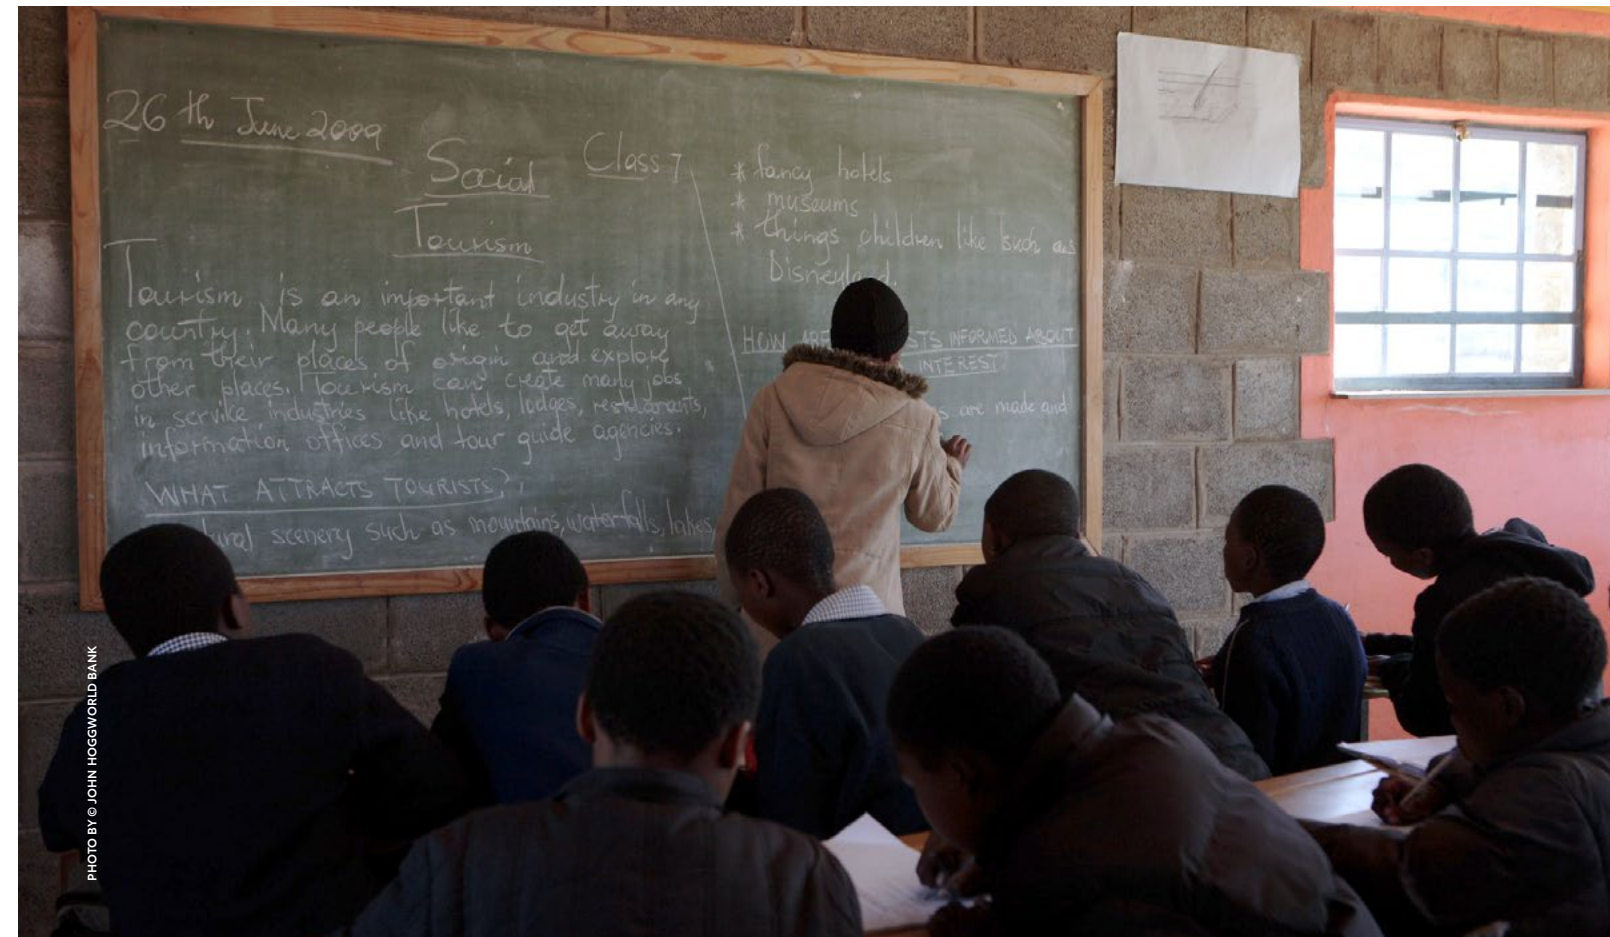 26th June 2009
Social
Class 7
Tourism
Tourism is an important industry in any
country. Many people like to get away
from their places of origin and explore
other places. Tourism can create many jobs
in service industries like hotels, lodges, restaurants,
information offices and tour guide agencies.
WHAT ATTRACTS TOURISTS?
scenery such as mountains, waterfalls, lakes,
* fancy hotels
* museums
* things children like such as
Disneyland
HOW ARE INFORMED ABOUT
INTEREST
are made and
PHOTO BY © JOHN HOGGWORLD BANK